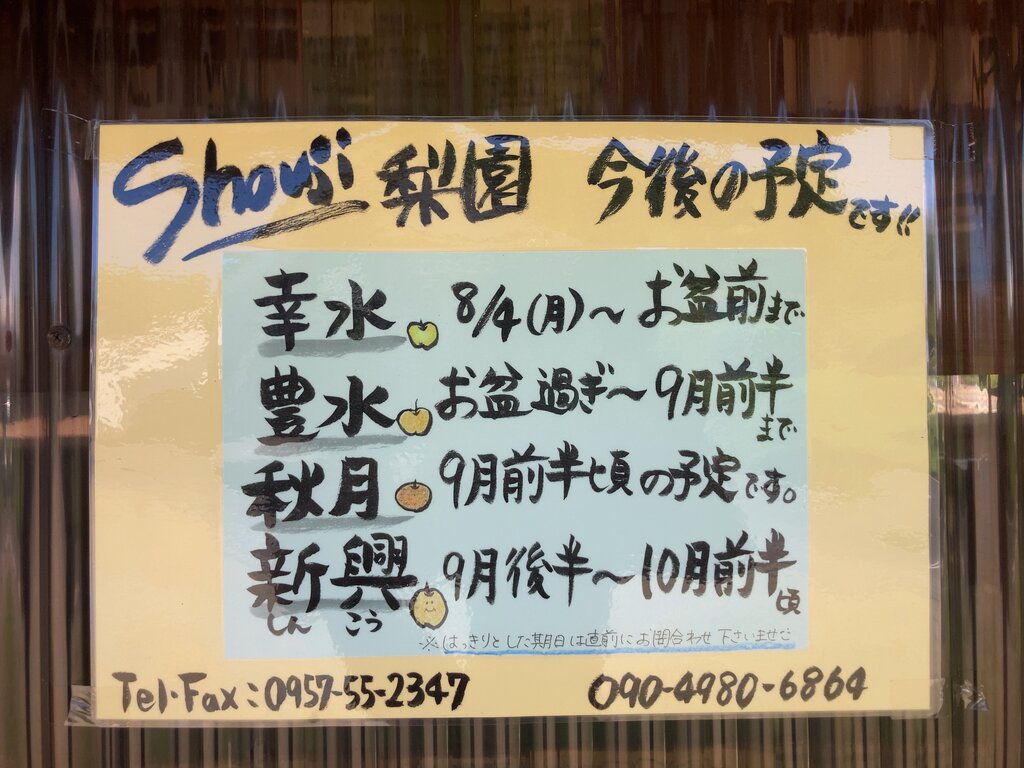 Shouji 梨園 今後の予定です!!
幸水 8/4(月)～お盆前まで
豊水 お盆過ぎ～9月前半まで
秋月 9月前半頃の予定です。
新興 9月後半～10月前半頃
しん こう
※はっきりとした期日は直前にお問合わせ下さいませ
Tel・Fax:0957-55-2347 090-4980-6864